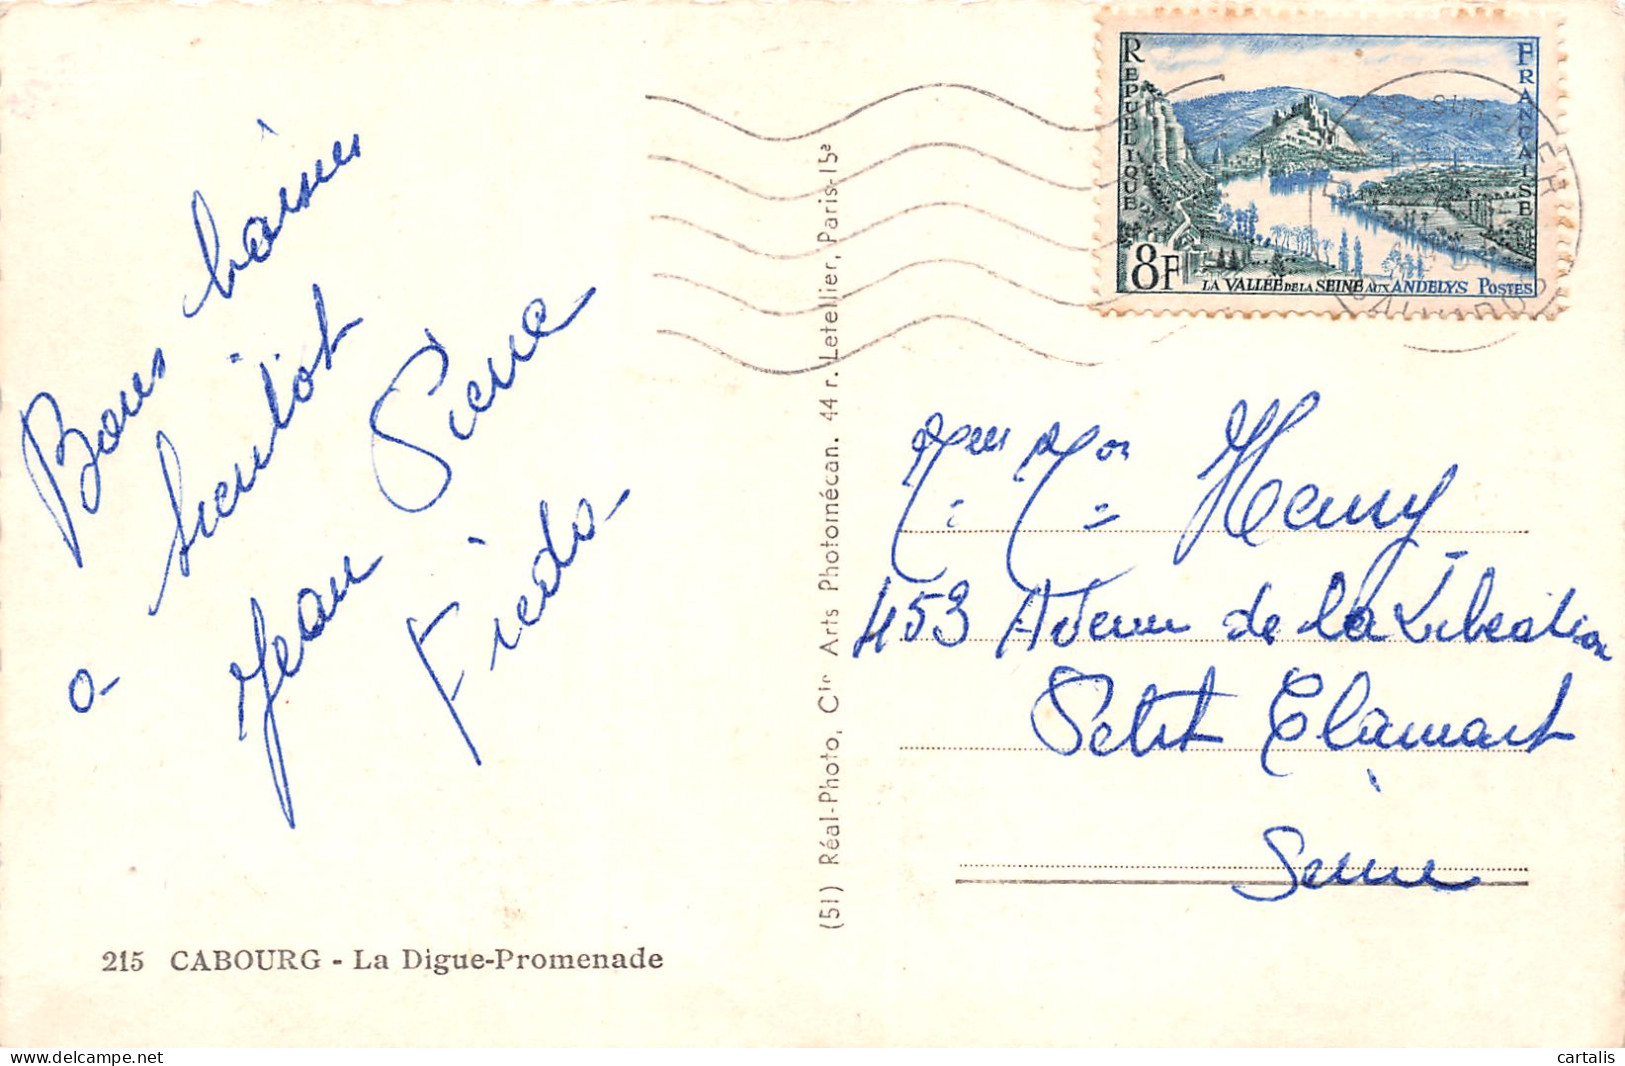 Bons baisers
a bientôt
Jean Pierre
Frédo
215 CABOURG - La Digue-Promenade
(51) Réal-Photo, Cie Arts Photomécan. 44 r. Letellier, Paris-15e
RÉPUBLIQUE FRANÇAISE
8F
LA VALLÉE DE LA SEINE AUX ANDELYS POSTES
SUR-MER
CALVADOS
Henry
453 Avenue de la Libération
Petit Clamart
Seine
cartalis